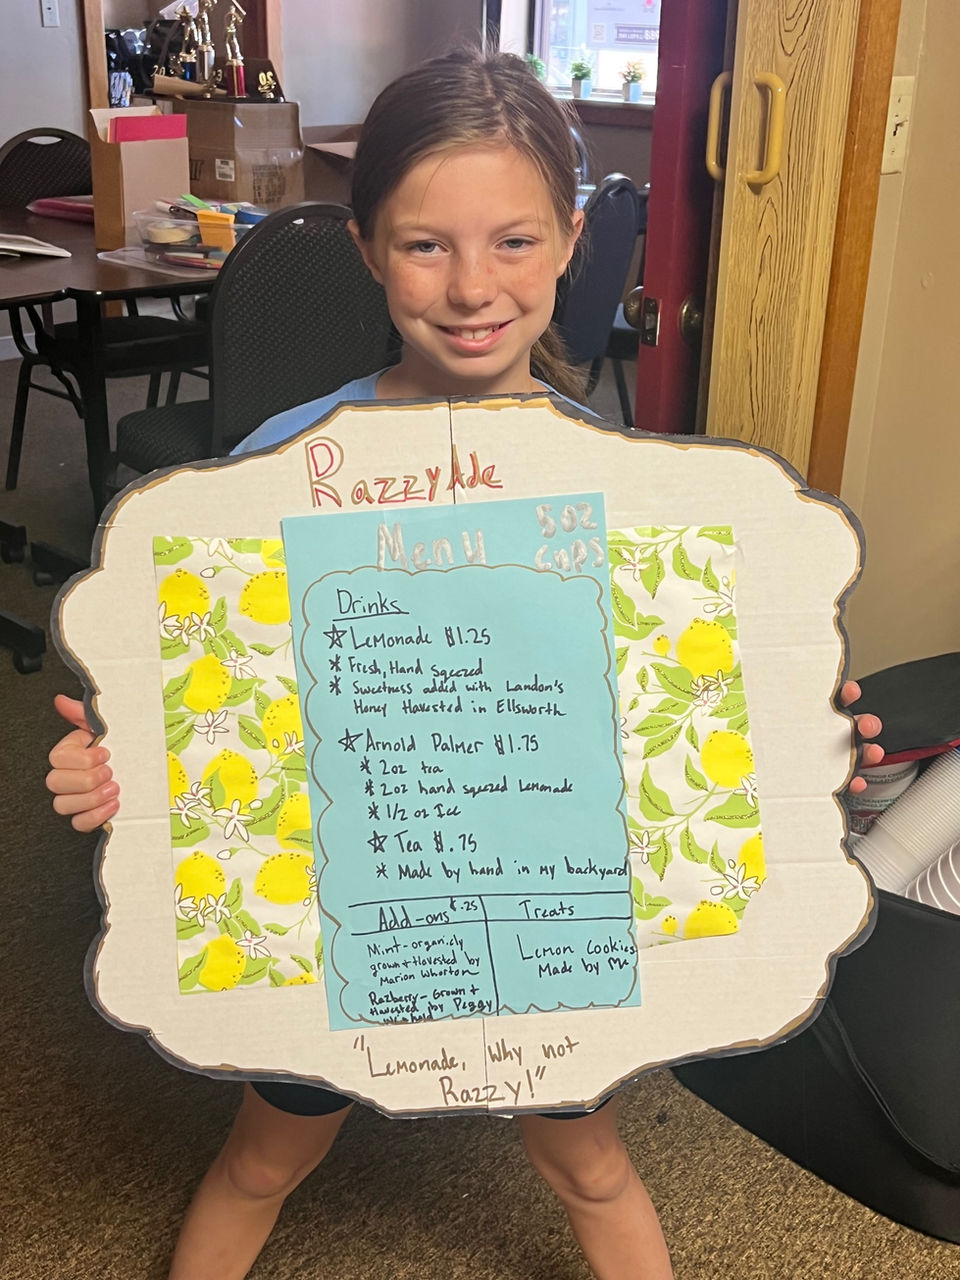 RazzyAde
Menu
5oz
cups
Drinks
☆ Lemonade $1.25
* Fresh, Hand Sqeezed
* Sweetness added with Landon's
Honey Havested in Ellsworth
☆ Arnold Palmer $1.75
* 2oz tea
* 2oz hand sqeezed Lemonade
* 1/2 oz Ice
☆ Tea $.75
* Made by hand in my backyard
Add-ons $.25
Mint-organicly
grown + Havested by
Marion Whorton
Razberry- Grown +
Havested by Peggy
Treats
Lemon Cookies
Made by Me
"Lemonade, Why not
Razzy!"